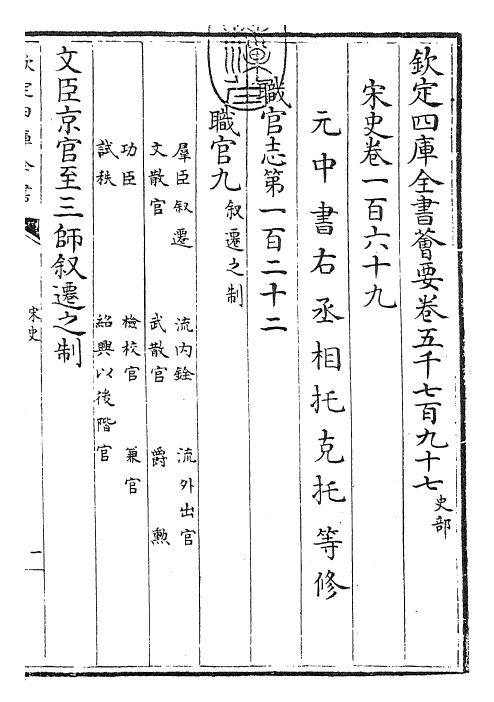 欽定四庫全書薈要卷五千七百九十七史部
宋史卷一百六十九
元中書右丞相托克托等修
職官志第一百二十二
職官九叙遷之制
羣臣叙遷 流內銓 流外出官
文散官 武散官 爵 勲
功臣 檢校官 兼官
試秩 紹興以後階官
文臣京官至三師叙遷之制
宋史
一